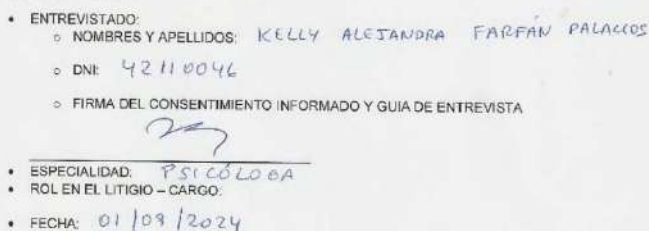 • ENTREVISTADO:
○ NOMBRES Y APELLIDOS: KELLY ALEJANDRA FARFÁN PALACIOS
○ DNI: 42110046
○ FIRMA DEL CONSENTIMIENTO INFORMADO Y GUIA DE ENTREVISTA
• ESPECIALIDAD: PSICÓLOGA
• ROL EN EL LITIGIO – CARGO:
• FECHA: 01/09/2024